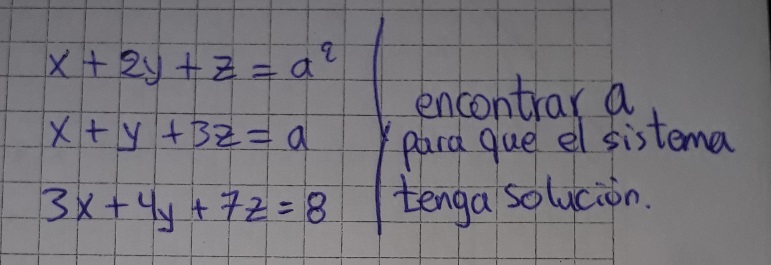 x + 2y + z = a²
x + y + 3z = a
3x + 4y + 7z = 8
encontrar a
para que el sistema
tenga solución.